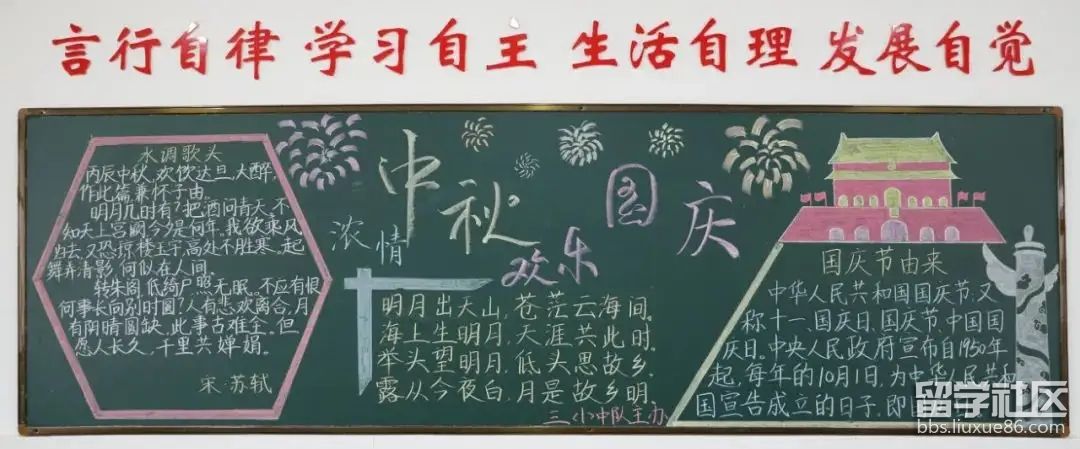 言行自律 学习自主 生活自理 发展自觉
水调歌头
丙辰中秋,欢饮达旦,大醉,
作此篇兼怀子由。
明月几时有?把酒问青天。不
知天上宫阙,今夕是何年。我欲乘风
归去,又恐琼楼玉宇,高处不胜寒。起
舞弄清影,何似在人间。
转朱阁,低绮户,照无眠。不应有恨,
何事长向别时圆?人有悲欢离合,月
有阴晴圆缺,此事古难全。但
愿人长久,千里共婵娟。
宋·苏轼
浓情
中秋
欢乐
国庆
明月出天山,苍茫云海间。
海上生明月,天涯共此时。
举头望明月,低头思故乡。
露从今夜白,月是故乡明。
中队主办
国庆节由来
中华人民共和国国庆节,又
称十一、国庆日、国庆节、中国国
庆日。中央人民政府宣布自1950年
起,每年的10月1日,为中华人民共和
国宣告成立的日子,即国
留学社区
bbs.liuxue86.com